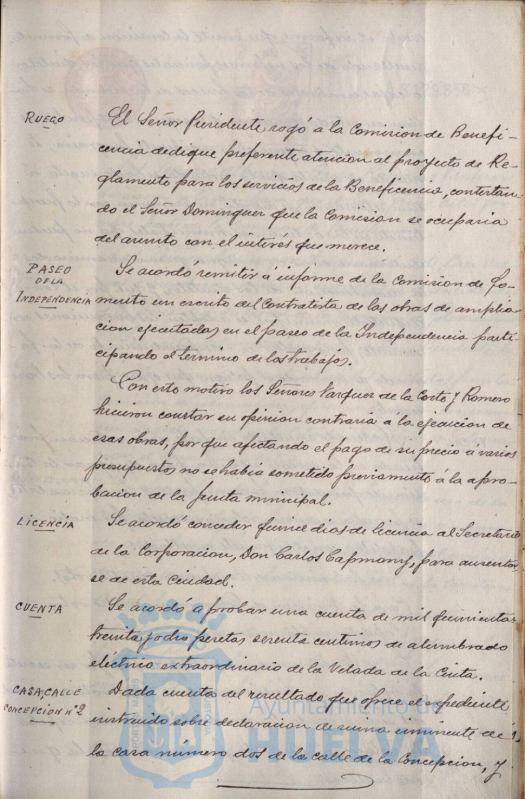 RUEGO
El Señor Presidente rogó á la Comision de Benefi-
cencia dedique preferente atencion al proyecto de Re-
glamento para los servicios de la Beneficencia, contestan-
do el Señor Dominguez que la Comision se ocuparia
del asunto con el interés que merece.
PASEO
DE LA
INDEPENDENCIA
Se acordó remitir á informe de la Comision de Fo-
mento un escrito del Contratista de las obras de amplia-
cion ejecutadas en el paseo de la Independencia parti-
cipando el termino de los trabajos.
Con este motivo los Señores Vazquez de la Corte y Romero
hicieron constar su opinion contraria á la ejecucion de
esas obras, por que afectando el pago de su precio á varios
presupuestos no se habia sometido previamente á la apro-
bacion de la Junta municipal.
LICENCIA
Se acordó conceder quince dias de licencia al Secretario
de la Corporacion, Don Carlos Capmany, para ausentar
se de esta Ciudad.
CUENTA
Se acordó aprobar una cuenta de mil quinientas
treinta y dos pesetas sesenta centimos de alumbrado
eléctrico extraordinario de la Velada de la Cinta.
CASA, CALLE
CONCEPCION nº 2
Dada cuenta del resultado que ofrece el expediente
instruido sobre declaracion de ruina inminente de
la casa número dos de la calle de la Concepcion, y
Ayuntamiento de
HUELVA